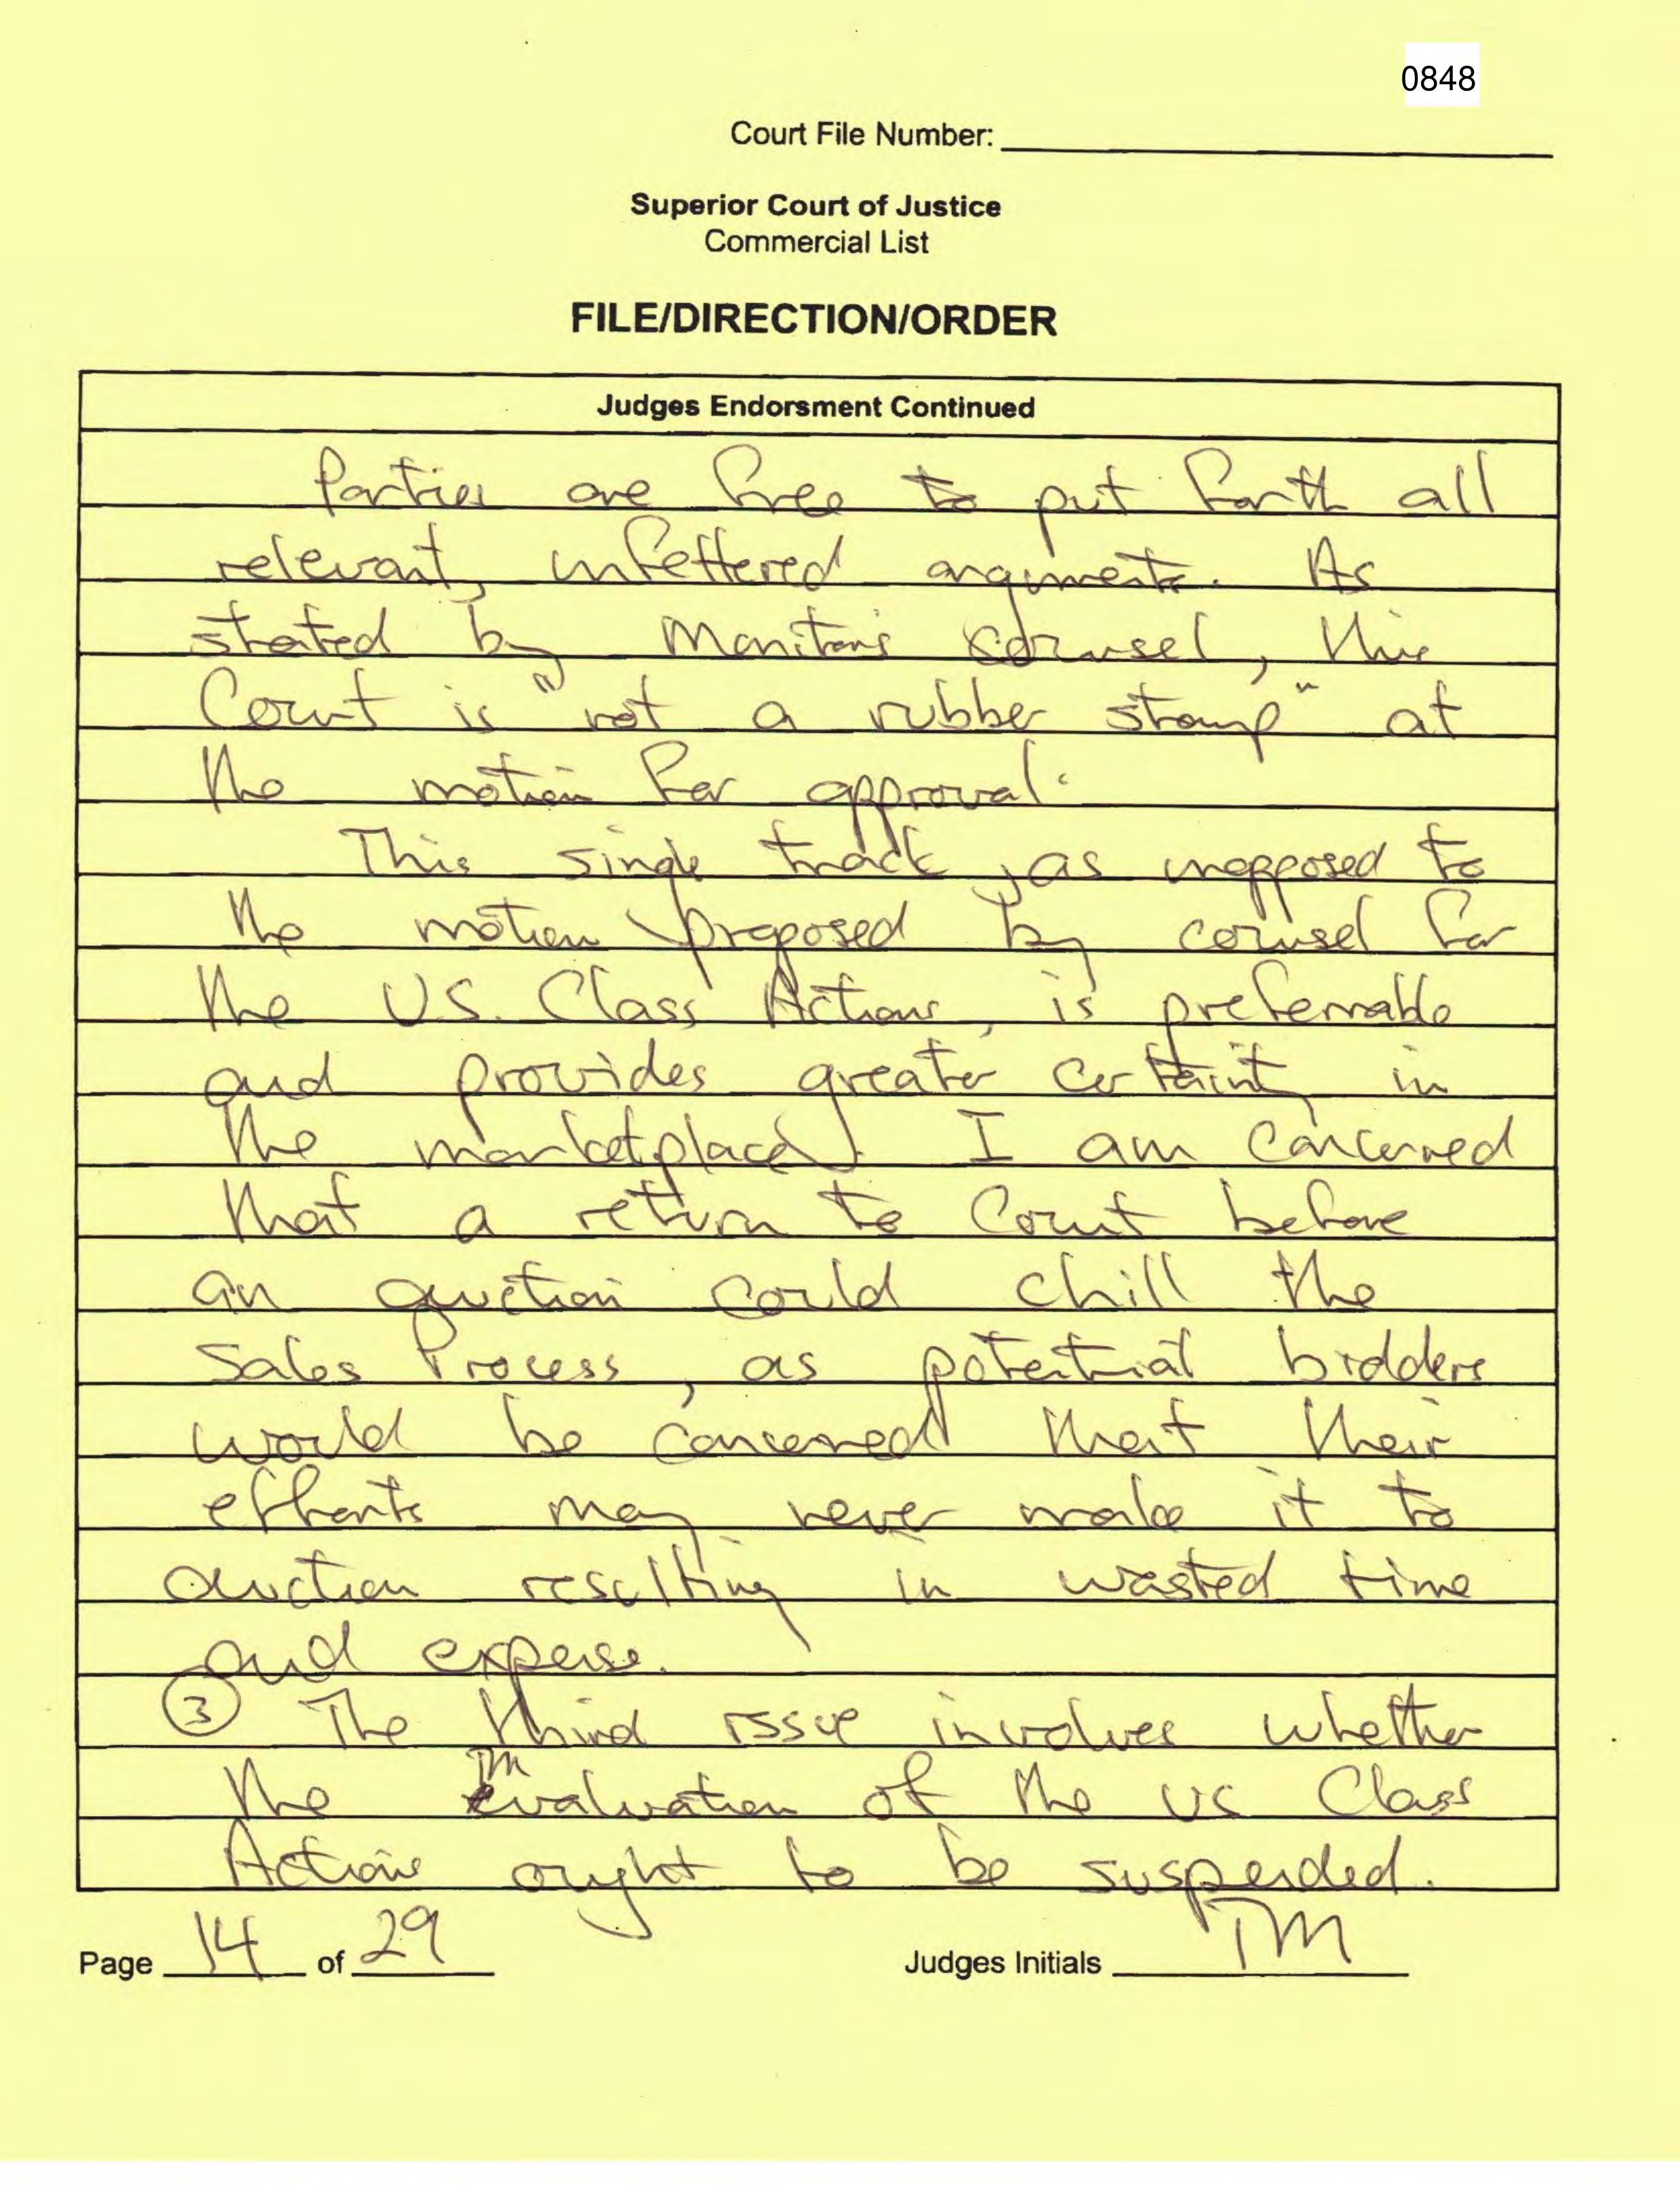 0848
Court File Number:
Superior Court of Justice
Commercial List
FILE/DIRECTION/ORDER
Judges Endorsment Continued
Parties are free to put forth all
relevant, unfettered arguments. As
stated by Monitor's counsel, this
Court is "not a rubber stamp" at
the motion for approval.
This single track, as unopposed to
the motion proposed by counsel for
the U.S. Class Actions, is preferrable
and provides greater certainty in
the marketplace. I am concerned
that a return to Court before
an auction could chill the
Sales Process, as potential bidders
would be concerned that their
efforts may never make it to
auction resulting in wasted time
and expense.
3 The third issue involves whether
TM
the evaluation of the US Class
Actions ought to be suspended.
Page 14 of 29
Judges Initials TM